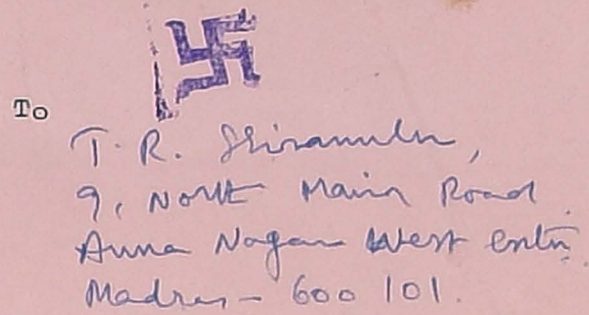 To
T. R. Shiramulu,
9, North Main Road.
Anna Nagar West Extn.
Madras - 600 101.